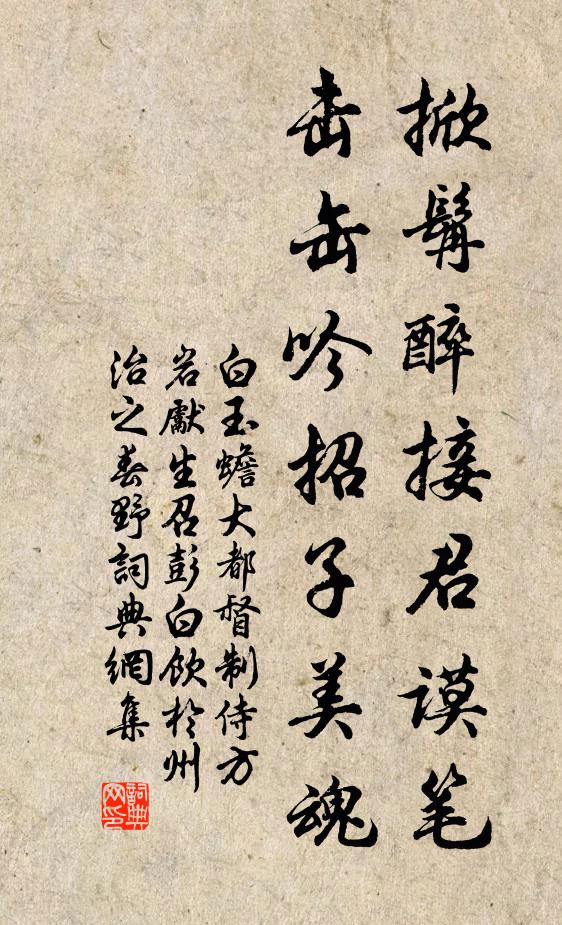 掀髯醉接君谟笔
击缶吟招子美魂
白玉蟾大都督制侍方
岩獻生召彭白飲於州
治之春野詞典網集
詞典
网印